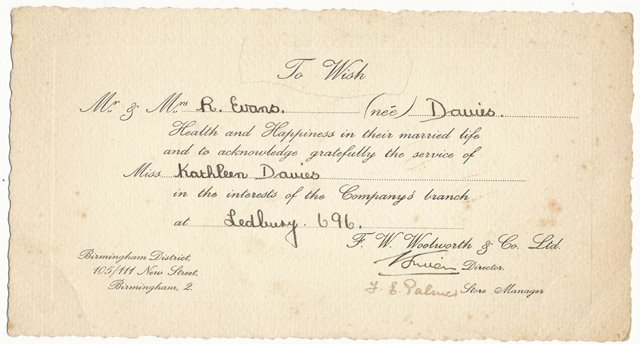 To Wish
Mr. & Mrs. R. Evans. (née) Davies.
Health and Happiness in their married life
and to acknowledge gratefully the service of
Miss Kathleen Davies
in the interests of the Company's branch
at Ledbury. 696.
F. W. Woolworth & Co. Ltd.
Director.
F. E. Palmer Store Manager
Birmingham District,
105/111 New Street,
Birmingham, 2.